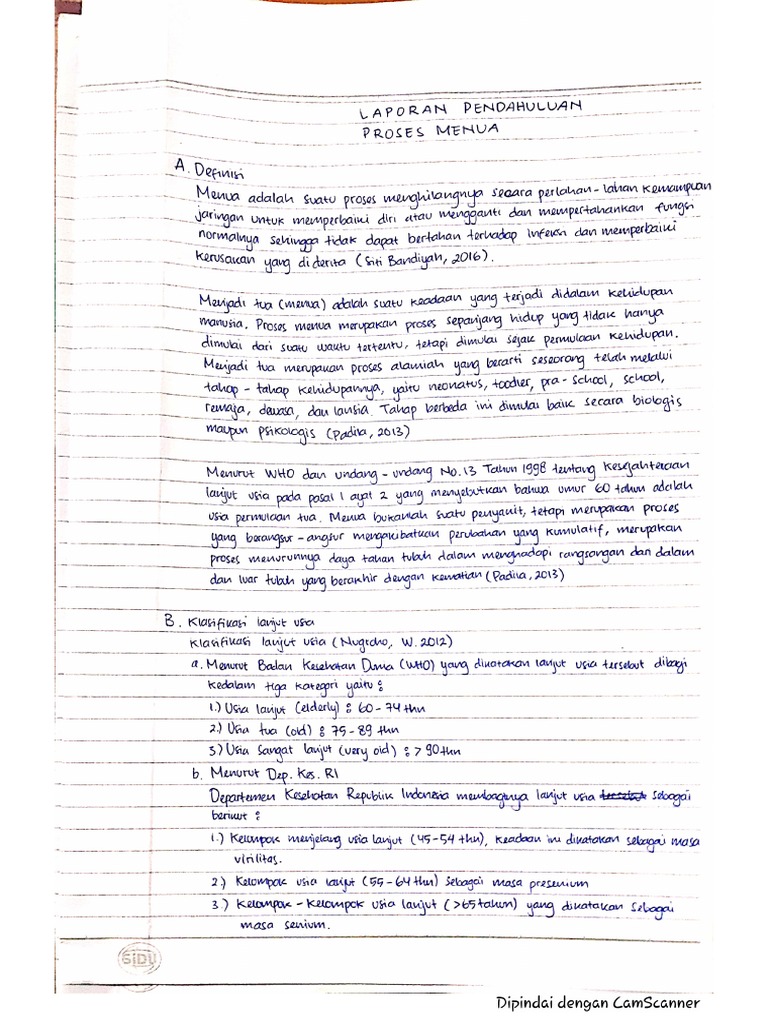 LAPORAN PENDAHULUAN
PROSES MENUA
A. Definisi
Menua adalah suatu proses menghilangnya secara perlahan-lahan kemampuan
jaringan untuk memperbaiki diri atau mengganti dan mempertahankan fungsi
normalnya sehingga tidak dapat bertahan terhadap infeksi dan memperbaiki
kerusakan yang diderita (Siti Bandiyah, 2016).
Menjadi tua (menua) adalah suatu keadaan yang terjadi didalam kehidupan
manusia. Proses menua merupakan proses sepanjang hidup yang tidak hanya
dimulai dari suatu waktu tertentu, tetapi dimulai sejak permulaan kehidupan.
Menjadi tua merupakan proses alamiah yang berarti seseorang telah melalui
tahap-tahap kehidupannya, yaitu neonatus, toodler, pra-school, school,
remaja, dewasa, dan lansia. Tahap berbeda ini dimulai baik secara biologis
maupun psikologis (Padila, 2013)
Menurut WHO dan undang-undang No.13 Tahun 1998 tentang kesejahteraan
lanjut usia pada pasal 1 ayat 2 yang menyebutkan bahwa umur 60 tahun adalah
usia permulaan tua. Menua bukanlah suatu penyakit, tetapi merupakan proses
yang berangsur-angsur mengakibatkan perubahan yang kumulatif, merupakan
proses menurunnya daya tahan tubuh dalam menghadapi rangsangan dari dalam
dan luar tubuh yang berakhir dengan kematian (Padila, 2013)
B. Klasifikasi lanjut usia
Klasifikasi lanjut usia (Nugroho, W. 2012)
a. Menurut Badan Kesehatan Dunia (WHO) yang dikatakan lanjut usia tersebut dibagi
kedalam tiga kategori yaitu :
1.) Usia lanjut (elderly) : 60-74 thn
2.) Usia tua (old) : 75-89 thn
3.) Usia sangat lanjut (very old) : > 90 thn
b. Menurut Dep. Kes. RI
Departemen Kesehatan Republik Indonesia membaginya lanjut usia sebagai
berikut :
1.) Kelompok menjelang usia lanjut (45-54 thn), keadaan ini dikatakan sebagai masa
virilitas.
2.) Kelompok usia lanjut (55-64 thn) sebagai masa presenium
3.) Kelompok-Kelompok usia lanjut (>65 tahun) yang dikatakan sebagai
masa senium.
SIDU
Dipindai dengan CamScanner